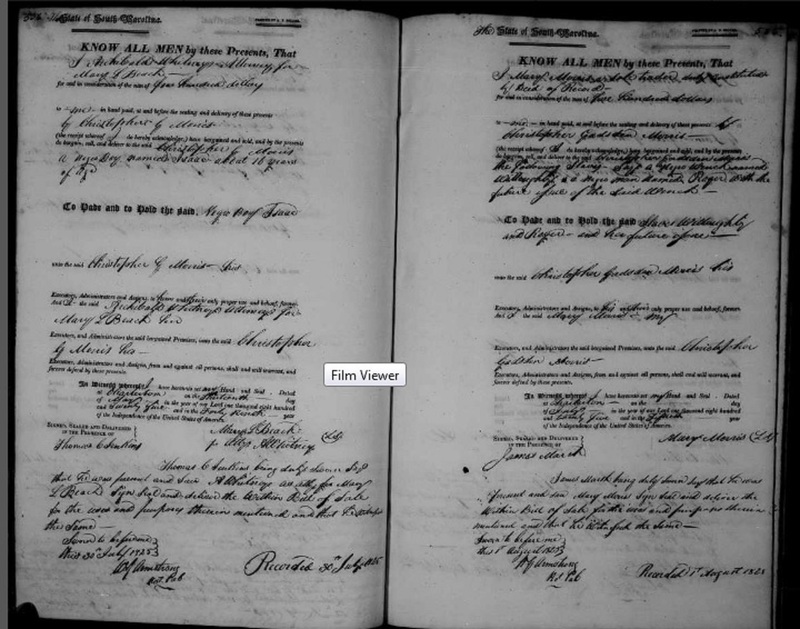 State of South-Carolina.
KNOW ALL MEN by these Presents, That
I Archibald Whitney Attorney for
Mary L Beach
for and in consideration of the sum of five Hundred dollars
to me in hand paid, at and before the sealing and delivery of these presents
by Christopher G Morris
(the receipt whereof I do hereby acknowledge,) have bargained and sold, and by these presents
do bargain, sell, and deliver to the said Christopher G Morris
a Negro Boy named Isaac about 16 years
of age
To Have and to Hold the said, Negro Boy Isaac
unto the said Christopher G Morris his
Executors, Administrators and Assigns, to his and their only proper use and behoof, forever.
And I the said Archibald Whitney Attorney for
Mary L Beach her
Executors, and Administrators the said bargained Premises, unto the said Christopher
G Morris his
Executors, Administrators and Assigns, from and against all persons, shall and will warrant, and
forever defend by these presents.
In Witness whereof I have hereunto set my Hand and Seal. Dated
at Charleston on the day
of May in the year of our Lord one thousand eight hundred
and Twenty five and in the Forty year
of the Independence of the United States of America.
SIGNED, SEALED AND DELIVERED
IN THE PRESENCE OF
Mary L Beach (LS)
Thomas C Jenkins
pr Atty A Whitney
Thomas C Jenkins being duly sworn says
that he was present and saw A Whitney as atty for Mary
L Beach sign seal and deliver the within Bill of Sale
for the uses and purposes therein mentioned and that he witnessed
the Same
Sworn to before me
this 30 July 1825
Not Pub
Recorded 30th July 1825
The State of South-Carolina.
KNOW ALL MEN by these Presents, That
I Mary Morris a sole trader duly constituted
by Deed of Record
for and in consideration of the sum of five hundred dollars
to me in hand paid, at and before the sealing and delivery of these presents by
Christopher Gadsden Morris
(the receipt whereof I do hereby acknowledge,) have bargained and sold, and by these presents
do bargain, sell, and deliver to the said Christopher Gadsden Morris
the following Slaves a Negro Wench named
Willoughby & a Negro man named Roger with the
future issue of the said Wench
To Have and to Hold the said Slaves Willoughby
and Roger and her future issue
unto the said Christopher Gadsden Morris his
Executors, Administrators and Assigns, to his and their only proper use and behoof, forever.
And I the said Mary Morris my
Executors, and Administrators the said bargained Premises, unto the said Christopher
Gadsden Morris
Executors, Administrators and Assigns, from and against all persons, shall and will warrant, and
forever defend by these presents.
In Witness whereof I have hereunto set my Hand and Seal. Dated
at Charleston on the day
of in the year of our Lord one thousand eight hundred
and Twenty five and in the year
of the Independence of the United States of America.
SIGNED, SEALED AND DELIVERED
IN THE PRESENCE OF
Mary Morris (LS)
James Marsh
James Marsh being duly sworn says that he was
present and saw Mary Morris sign seal and deliver the
within Bill of Sale for the uses and purposes therein
mentioned and that he witnessed the Same
Sworn to before me
this 1st August 1825
Not Pub
Recorded 1st August 1825
Film Viewer